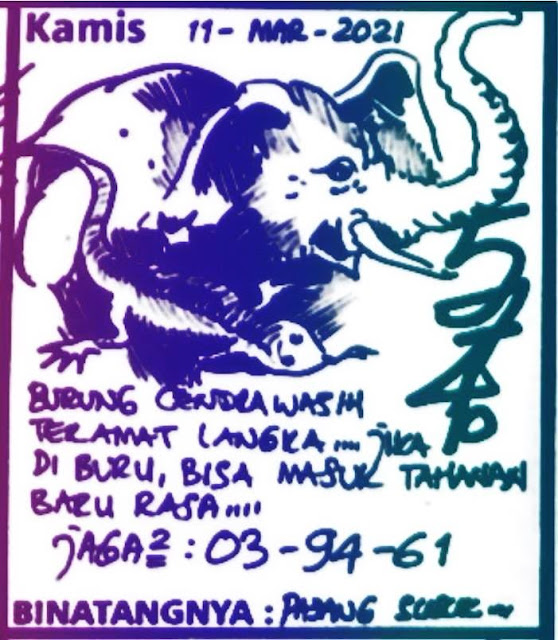 Kamis 11 - MAR - 2021
BURUNG CENDRAWASIH
TERAMAT LANGKA.... JIKA
DI BURU, BISA MASUK TAHANAN
BARU RASA.....
JAGA2 : 03 - 94 - 61
BINATANGNYA :